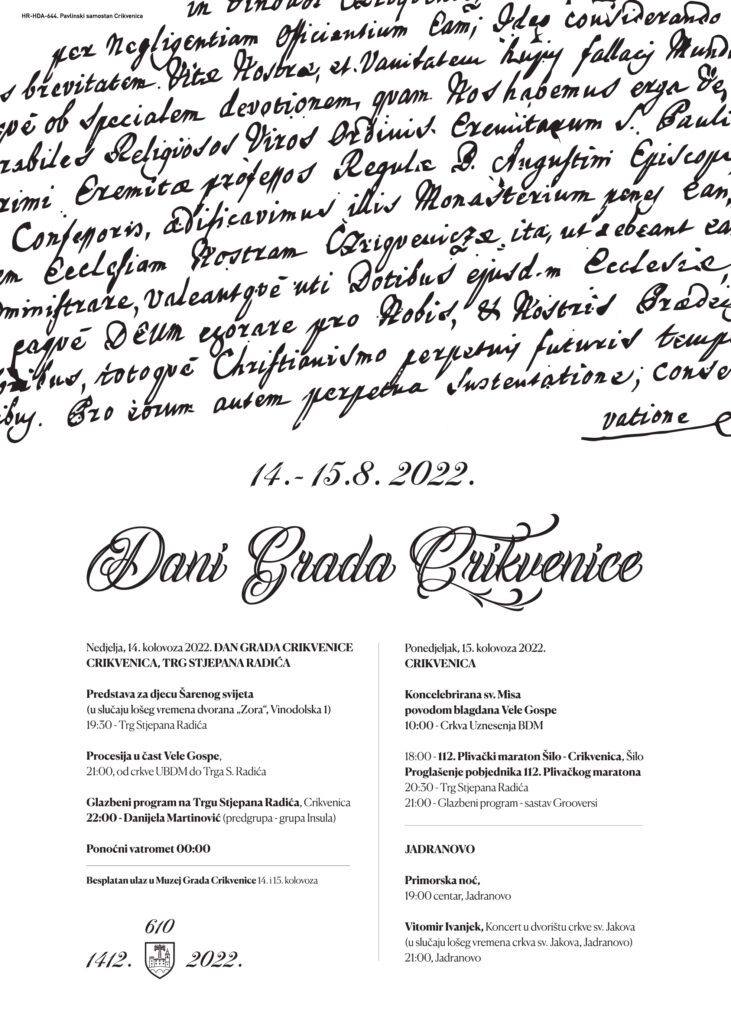 HR-HDA-644. Pavlinski samostan Crikvenica
per Negligentiam Officiantium Eam; Ideo considerando
s brevitatem Vitæ Nostræ, et Vanitatem hujus fallacis Mundi
qvē ob specialem devotionem, quam Nos habemus erga Ve,
rabiles Religiosos Viros Ordinis Eremitarum S. Pauli
rimi Eremitæ professos Regulæ D. Augustini Episcopi
Confessoris, ædificavimus illis Monasterium penes Ean,
em Ecclesiam Nostram Czriqveniczæ, ita, ut debeant ea
dministrare, valeantqvē uti Dotibus ejusd.m Ecclesiæ,
eaqvē DEUM exorare pro Nobis, & Nostris Prædec
oribus, totoqvē Christianismo perpetuis futuris temp
ibus. Pro eorum autem perpetua sustentatione, conse
vatione
14.-15.8. 2022.
Dani Grada Crikvenice
Nedjelja, 14. kolovoza 2022. DAN GRADA CRIKVENICE
CRIKVENICA, TRG STJEPANA RADIĆA
Predstava za djecu Šarenog svijeta
(u slučaju lošeg vremena dvorana „Zora“, Vinodolska 1)
19:30 - Trg Stjepana Radića
Procesija u čast Vele Gospe,
21:00, od crkve UBDM do Trga S. Radića
Glazbeni program na Trgu Stjepana Radića, Crikvenica
22:00 - Danijela Martinović (predgrupa - grupa Insula)
Ponoćni vatromet 00:00
Besplatan ulaz u Muzej Grada Crikvenice 14. i 15. kolovoza
610
1412. 2022.
Ponedjeljak, 15. kolovoza 2022.
CRIKVENICA
Koncelebrirana sv. Misa
povodom blagdana Vele Gospe
10:00 - Crkva Uznesenja BDM
18:00 - 112. Plivački maraton Šilo - Crikvenica, Šilo
Proglašenje pobjednika 112. Plivačkog maratona
20:30 - Trg Stjepana Radića
21:00 - Glazbeni program - sastav Grooversi
JADRANOVO
Primorska noć,
19:00 centar, Jadranovo
Vitomir Ivanjek, Koncert u dvorištu crkve sv. Jakova
(u slučaju lošeg vremena crkva sv. Jakova, Jadranovo)
21:00, Jadranovo